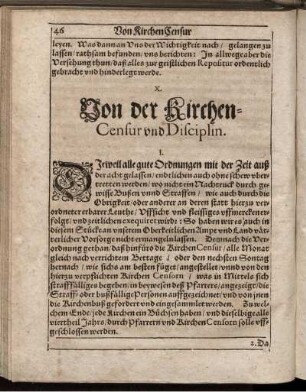 46 Von Kirchen Censur
leyen. Was dann an Vns der Wichtigkeit nach / gelangen zu
lassen / rathsam befunden / vns berichten: In allweg aber die
Versehung thun / daß alles zur geistlichen Repositur ordentlich
gebracht vnd hinderlegt werde.
X.
Von der Kirchen-
Censur vnd Disciplin.
I.
DJeweil alle gute Ordnungen mit der Zeit auß
der acht gelassen / endtlichen auch ohne schew vber-
tretten werden / wo nicht ein Nachtruck durch ge-
wisse Bussen vnnd Straffen / wie auch durch die
Obrigkeit oder anderer an deren statt hierzu ver-
ordneter erbarer Leuthe / Vffsicht vnd fleissiges vffmercken er-
folgt / vnd zeitlichen exequiert wirdt: So haben wir es auch in
diesem Stück an vnserem Oberkeitlichen Ampt vnd Land vät-
terlicher Vorsorge nicht ermangeln lassen. Demnach die Ver-
ordnung gethan / daß hinfüro die Kirchen Censur / alle Monat
gleich nach verrichtem Bettage / oder den nechsten Sontag
hernach / wie sichs am besten füget / angestellet / vnnd von den
hierzu verpflichten Kirchen Censorn / was in Mittels sich
strafffälliges begeben / in beywesen deß Pfarrers / angezeigt / die
Straff- oder bußfällige Personen auffgezeichnet / vnd von jnen
die Kirchenbuß gefordert vnd eingesammlet werden. Zu wel-
chem Ende / jede Kirchen ein Büchsen haben / vnd dieselbige alle
viertheil Jahrs / durch Pfarrern vnd Kirchen Censorn solle vff-
geschlossen werden.
2. Da